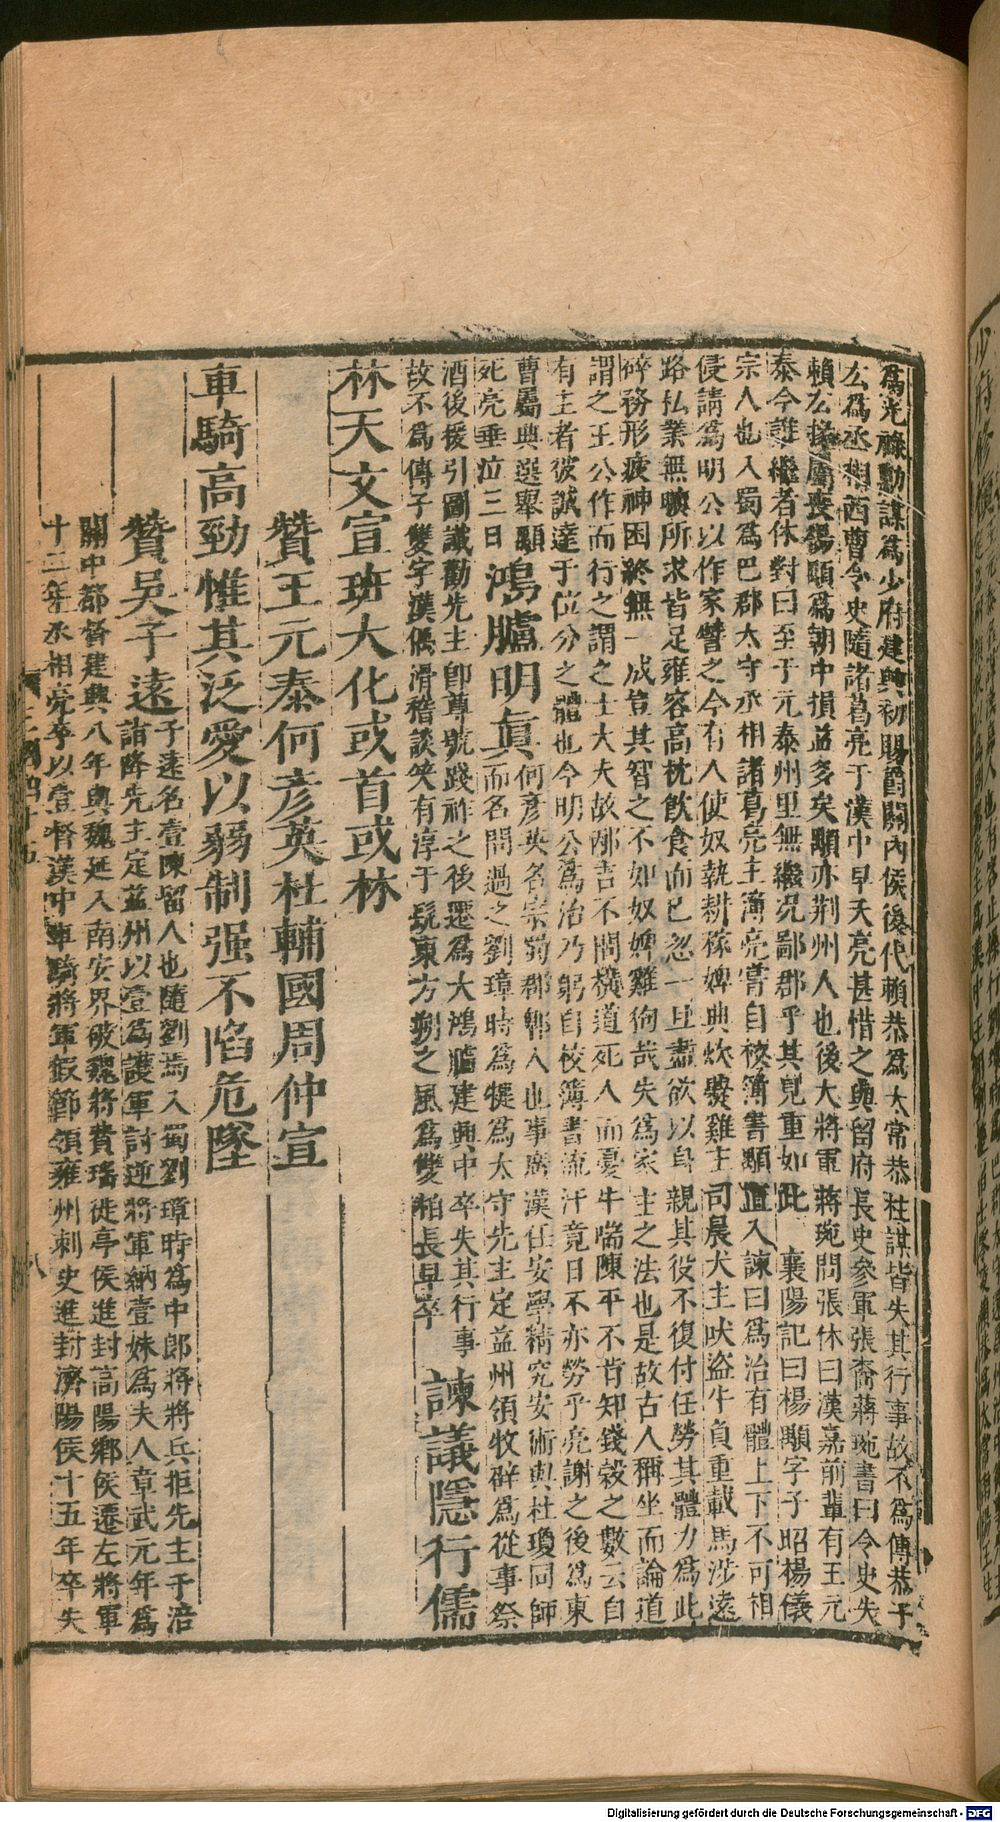 為光祿勳謀為少府建興初賜爵關內侯後代賴恭為太常恭柱謀皆失其行事故不為傳恭子
厷為丞相西曹令史隨諸葛亮于漢中早夭亮甚惜之與留府長史參軍張裔蔣琬書曰令史失
賴厷掾屬喪楊顒為朝中損益多矣顒亦荊州人也後大將軍蔣琬問張休曰漢嘉前輩有王元
泰今誰繼者休對曰至于元泰州里無繼況鄙郡乎其見重如此　襄陽記曰楊顒字子昭楊儀
宗人也入蜀為巴郡太守丞相諸葛亮主簿亮嘗自校簿書顒直入諫曰為治有體上下不可相
侵請為明公以作家譬之今有人使奴執耕稼婢典炊爨雞主司晨犬主吠盜牛負重載馬涉遠
路私業無曠所求皆足雍容高枕飲食而已忽一旦盡欲以身親其役不復付任勞其體力為此
碎務形疲神困終無一成豈其智之不如奴婢雞狗哉失為家主之法也是故古人稱坐而論道
謂之王公作而行之謂之士大夫故邴吉不問橫道死人而憂牛喘陳平不肯知錢穀之數云自
有主者彼誠達于位分之體也今明公為治乃躬自校簿書流汗竟日不亦勞乎亮謝之後為東
曹屬典選舉顒
死亮垂泣三日
鴻臚明真
何彥英名宗蜀郡郫人也事廣漢任安學精究安術與杜瓊同師
而名問過之劉璋時為犍為太守先主定益州領牧辟為從事祭
酒後援引圖讖勸先主即尊號踐祚之後遷為大鴻臚建興中卒失其行事
故不為傳子雙字漢偶滑稽談笑有淳于髡東方朔之風為雙柏長早卒
諫議隱行儒
林天文宣班大化或首或林
贊王元泰何彥英杜輔國周仲宣
車騎高勁惟其泛愛以弱制强不陷危墜
贊吳子遠
子遠名壹陳留人也隨劉焉入蜀劉璋時為中郎將將兵拒先主于涪
詣降先主定益州以壹為護軍討逆將軍納壹妹為夫人章武元年為
關中都督建興八年與魏延入南安界破魏將費瑤徙亭侯進封高陽鄉侯遷左將軍
十二年丞相亮卒以壹督漢中車騎將軍假節領雍州刺史進封濟陽侯十五年卒失
Digitalisierung gefördert durch die Deutsche Forschungsgemeinschaft - DFG